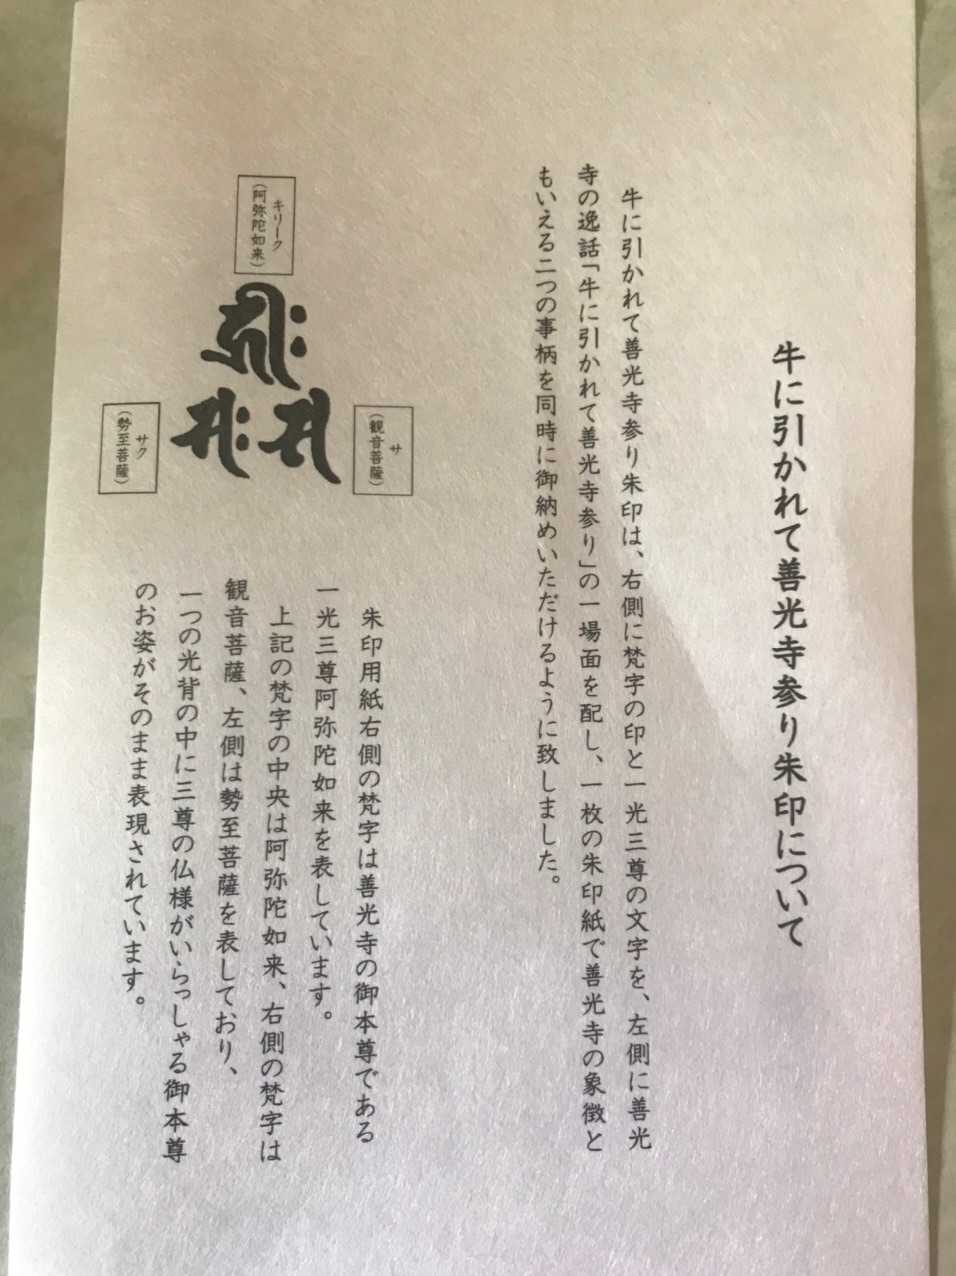 牛に引かれて善光寺参り朱印について
牛に引かれて善光寺参り朱印は、右側に梵字の印と一光三尊の文字を、左側に善光
寺の逸話「牛に引かれて善光寺参り」の一場面を配し、一枚の朱印紙で善光寺の象徴と
もいえる二つの事柄を同時に御納めいただけるように致しました。
キリーク
（阿弥陀如来）
サ
（観音菩薩）
サク
（勢至菩薩）
朱印用紙右側の梵字は善光寺の御本尊である
一光三尊阿弥陀如来を表しています。
上記の梵字の中央は阿弥陀如来、右側の梵字は
観音菩薩、左側は勢至菩薩を表しており、
一つの光背の中に三尊の仏様がいらっしゃる御本尊
のお姿がそのまま表現されています。